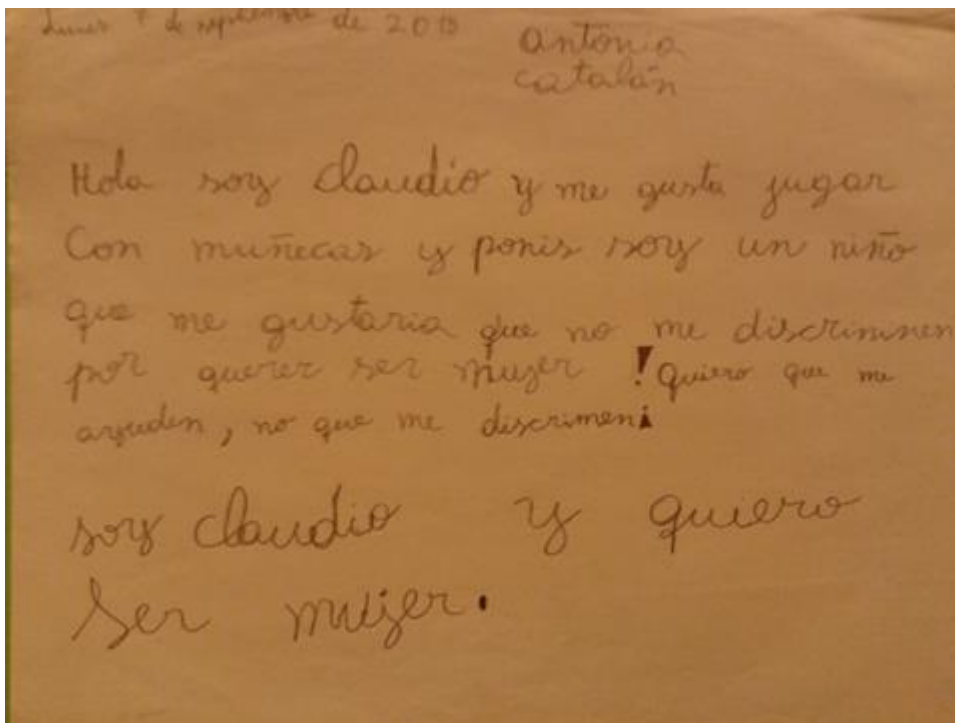 Lunes 7 de septiembre de 2015
antonia
catalán
Hola soy Claudio y me gusta jugar
Con muñecas y ponis soy un niño
que me gustaria que no me discriminen
por querer ser mujer ! Quiero que me
ayuden, no que me discrimen¡
soy claudio y quiero
ser mujer.